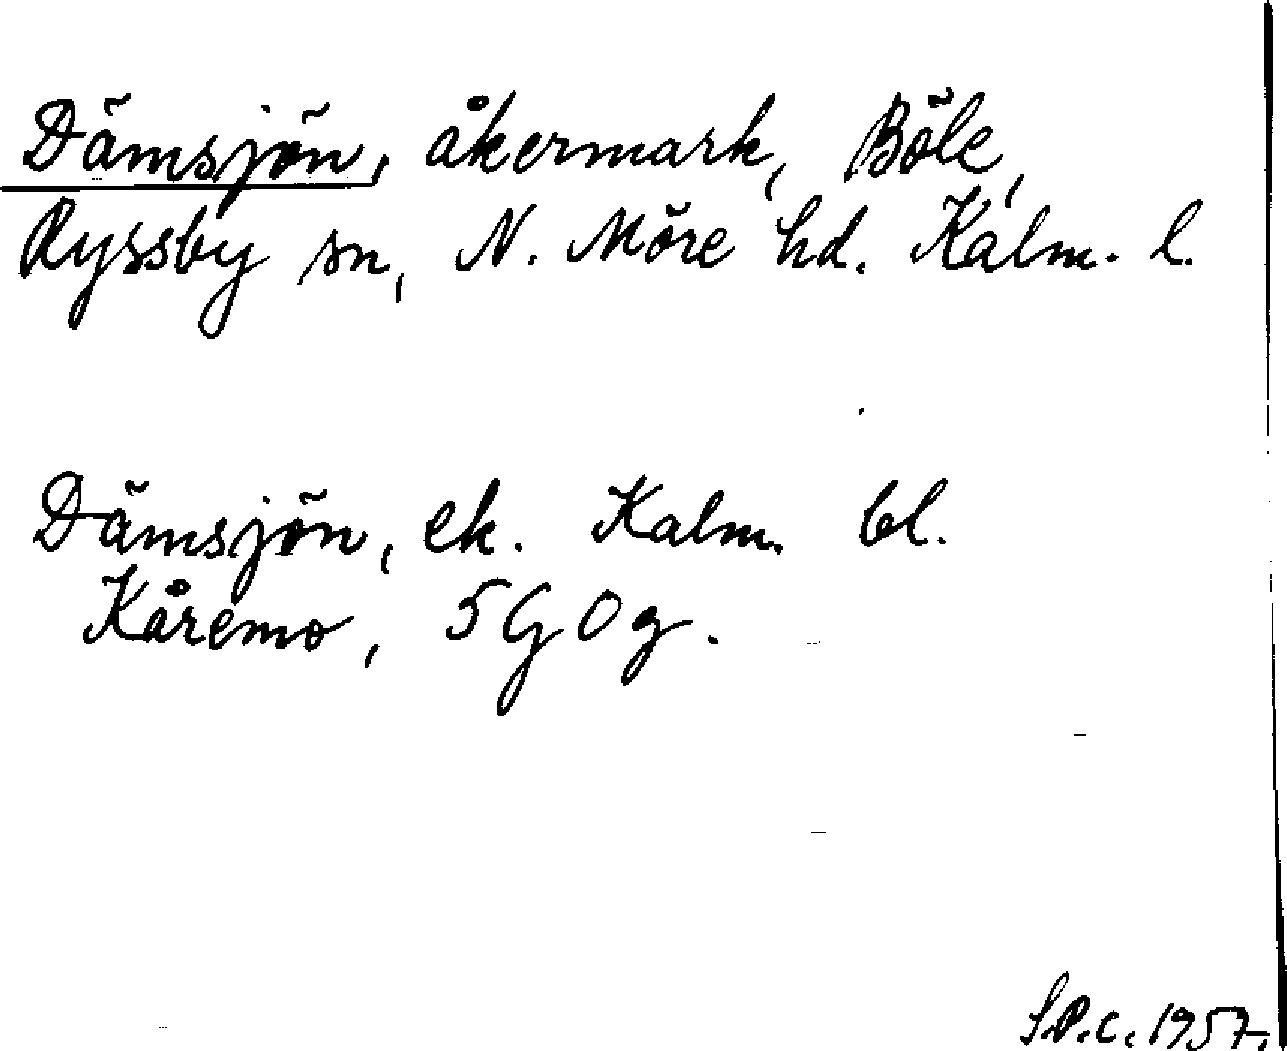 Dämsjön, åkermark, Böle,
Ryssby sn, N. Möre hd. Kalm. l.
Dämsjön, ek. Kalm. bl.
Kåremo, 5 G O g.
S.P.C. 1957.